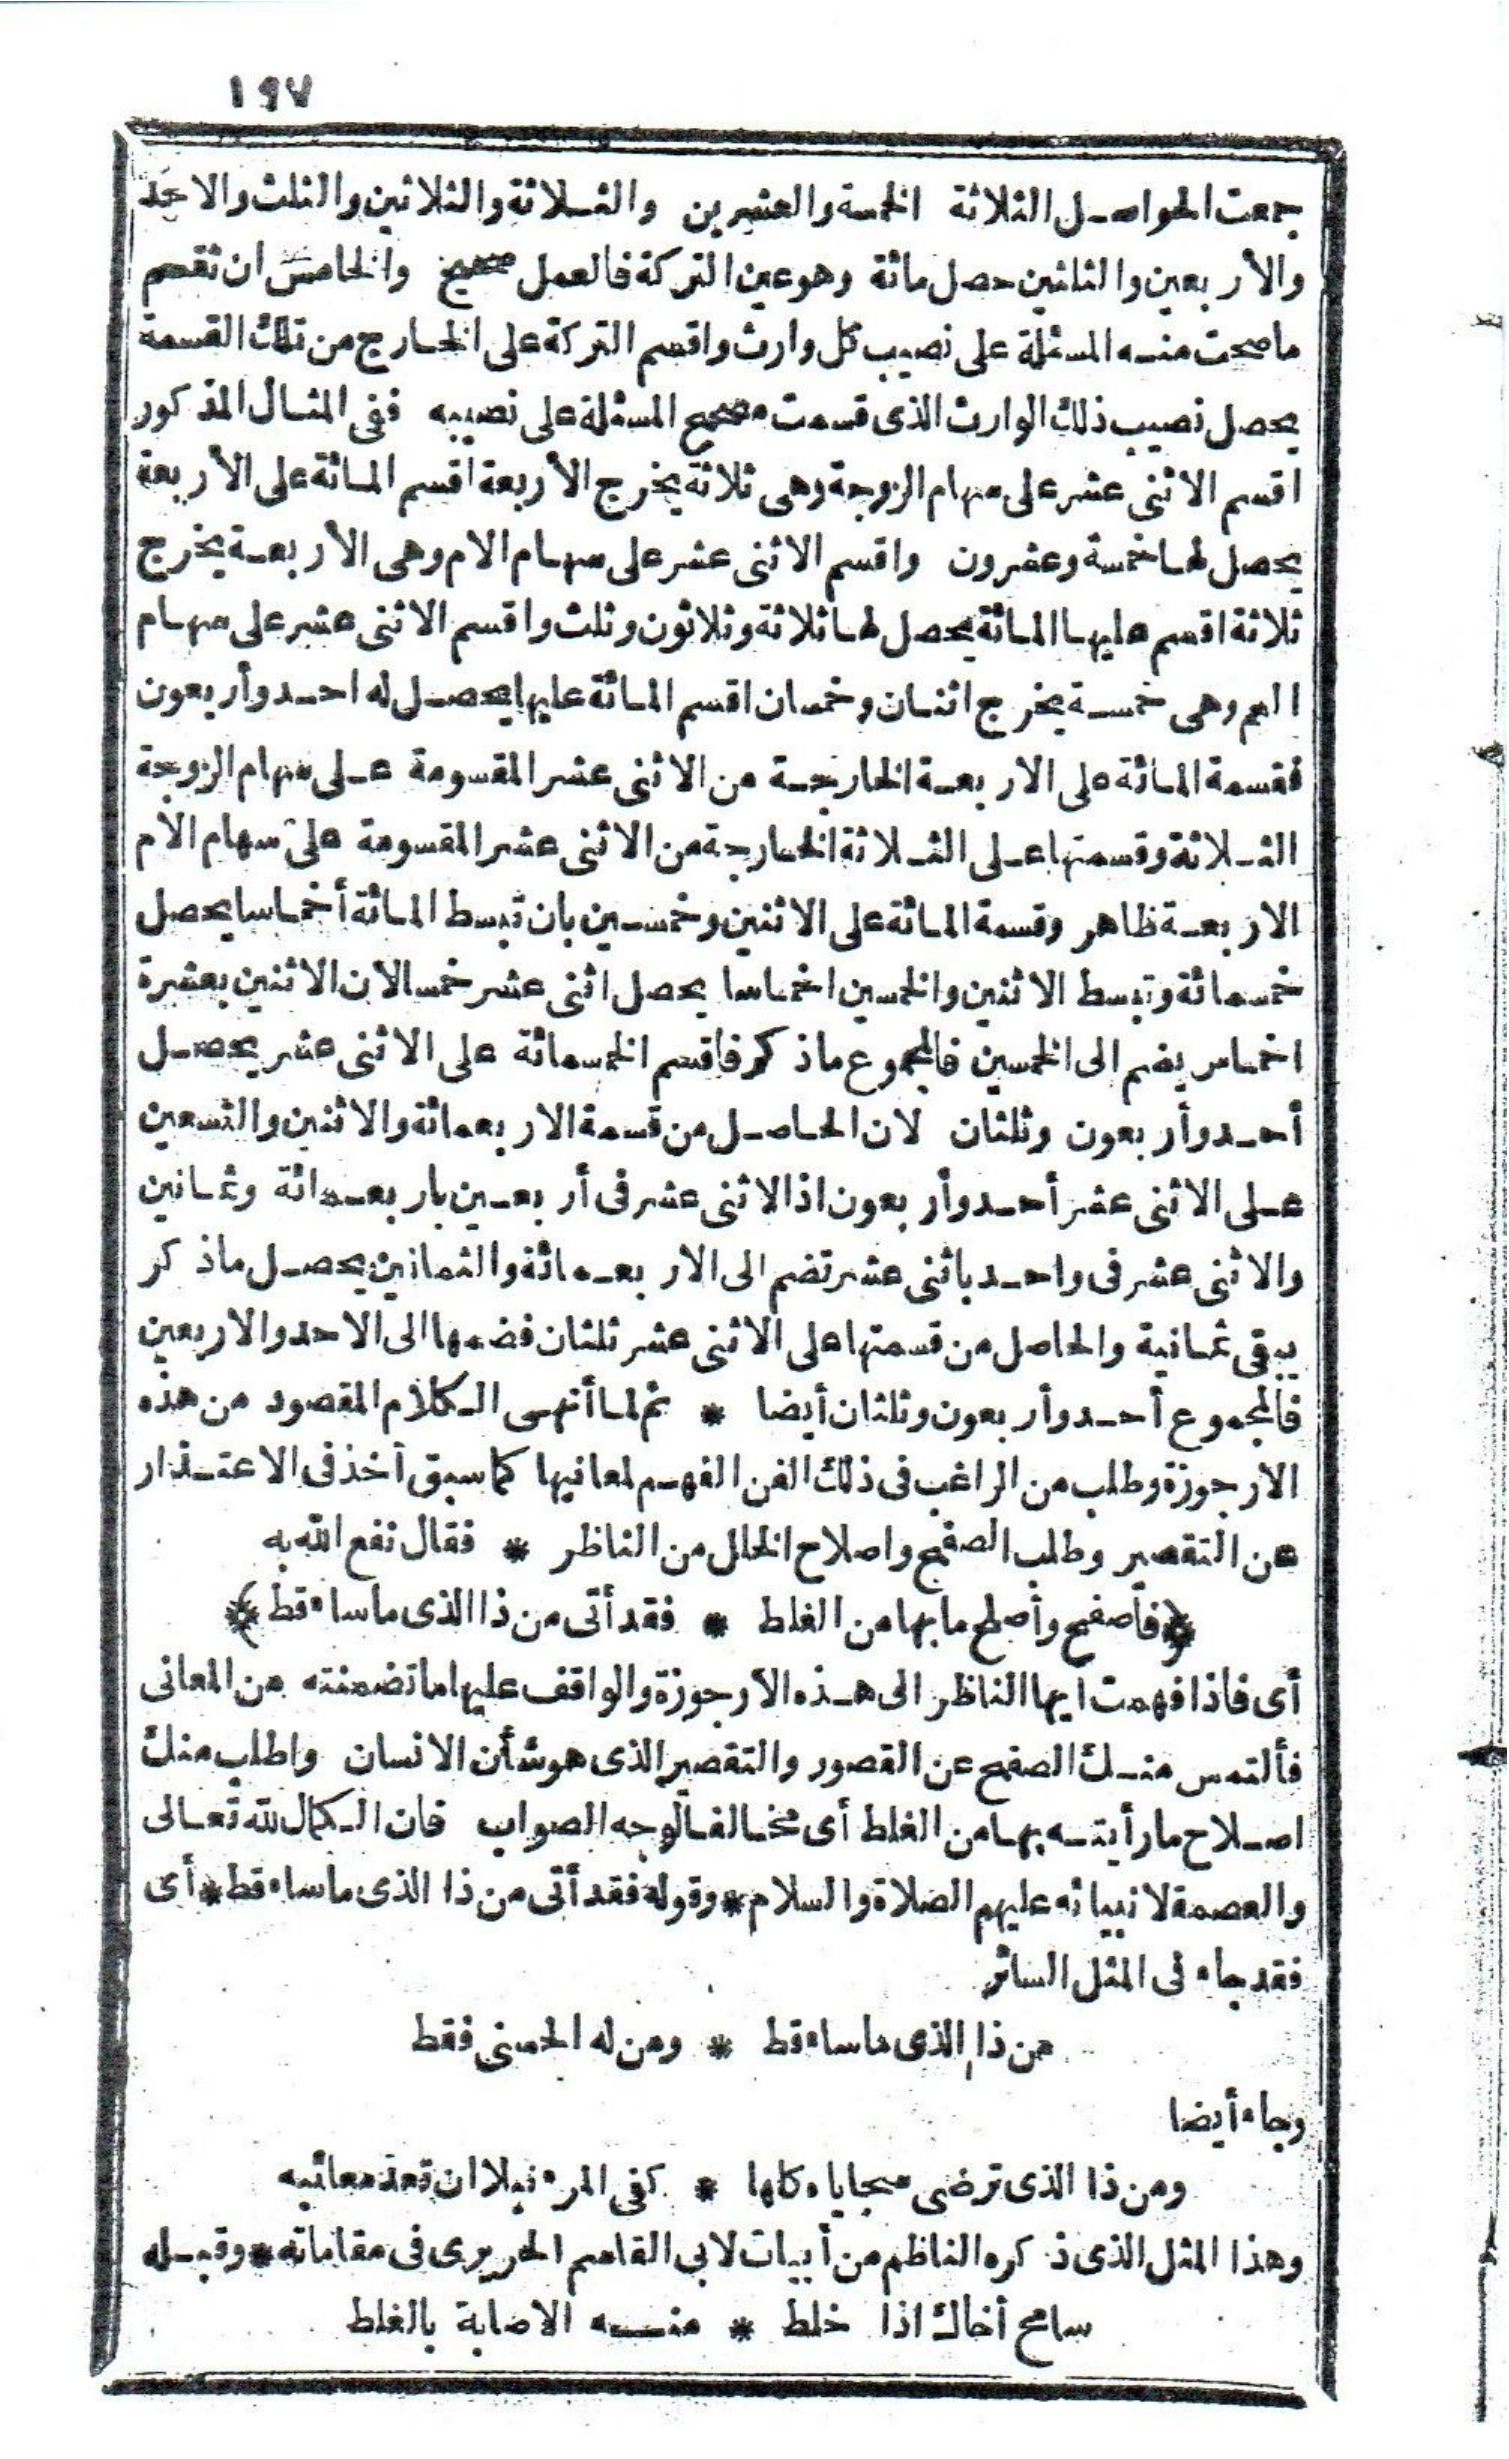 ١٩٧
جمعت الحواصل الثلاثة الخمسة والعشرين والثلاثة والثلاثين والثلث والاحد
والأربعين والثلثين حصل مائة وهو عين التركة فالعمل صحيح والخامس ان تقسم
ماصحت منه المسئلة على نصيب كل وارث واقسم التركة على الخارج من تلك القسمة
يحصل نصيب ذلك الوارث الذى قسمت مصحح المسئلة على نصيبه ففى المثال المذكور
اقسم الاثنى عشر على سهام الزوجة وهى ثلاثة يخرج الأربعة اقسم المائة على الأربعة
يحصل لها خمسة وعشرون واقسم الاثنى عشر على سهام الام وهى الأربعة يخرج
ثلاثة اقسم عليها المائة يحصل لها ثلاثة وثلاثون وثلث واقسم الاثنى عشر على سهام
العم وهى خمسة يخرج اثنان وخمسان اقسم المائة عليها يحصل له احد وأربعون
فقسمة المائة على الاربعة الخارجة من الاثنى عشر المقسومة على سهام الزوجة
الثلاثة وقسمتها على الثلاثة الخارجة من الاثنى عشر المقسومة على سهام الأم
الاربعة ظاهر وقسمة المائة على الاثنين وخمسين بان تبسط المائة أخماسا يحصل
خمسمائة وتبسط الاثنين والخمسين اخماسا يحصل اثنى عشر خمسا لان الاثنين بعشرة
اخماس يضم الى الخمسين فالمجموع ماذكر فاقسم الخمسمائة على الاثنى عشر يحصل
أحد وأربعون وثلثان لان الحاصل من قسمة الاربعمائة والاثنين والتسعين
على الاثنى عشر أحد وأربعون اذ الاثنى عشر فى أربعين باربعمائة وثمانين
والاثنى عشر فى واحد باثنى عشر تضم الى الاربعمائة والثمانين يحصل ماذكر
يبقى ثمانية والحاصل من قسمتها على الاثنى عشر ثلثان فضمها الى الاحد والاربعين
فالمجموع أحد وأربعون وثلثان أيضا * ثم لما أنهى الكلام المقصود من هذه
الارجوزة وطلب من الراغب فى ذلك الفن الفهم لمعانيها كما سبق أخذ فى الاعتذار
عن التقصير وطلب الصفح واصلاح الخلل من الناظر * فقال نفع الله به
﴿فاصفح وأصلح ما بها من الغلط * فقد أتى من ذا الذى ماساء قط﴾
أى فاذا فهمت ايها الناظر الى هذه الأرجوزة والواقف عليها ما تضمنته من المعانى
فألتمس منك الصفح عن القصور والتقصير الذى هو شأن الانسان واطلب منك
اصلاح مارأيته بها من الغلط أى مخالفا لوجه الصواب فان الكمال لله تعالى
والعصمة لانبيائه عليهم الصلاة والسلام * وقوله فقد أتى من ذا الذى ماساء قط * أى
فقد جاء فى المثل السائر
من ذا الذى ماساء قط * ومن له الحسنى فقط
وجاء أيضا
ومن ذا الذى ترضى سجاياه كلها * كفى المرء نبلا ان تعد معائبه
وهذا المثل الذى ذكره الناظم من أبيات لابى القاسم الحريرى فى مقاماته * وقبله
سامح أخاك اذا خلط * منه الاصابة بالغلط